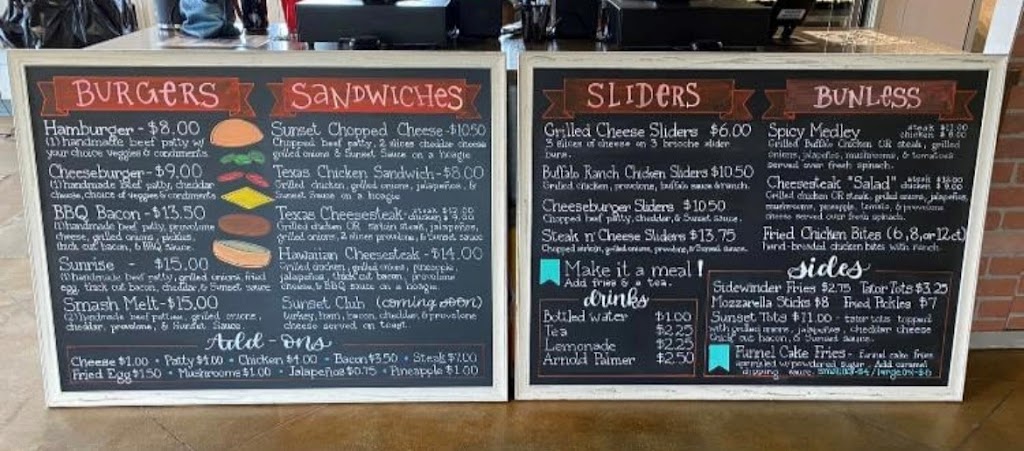 BURGERS
Hamburger - $8.00
(1) handmade beef patty w/
your choice veggies & condiments.
Cheeseburger - $9.00
(1) handmade beef patty, cheddar
cheese, choice of veggies & condiments
BBQ Bacon - $13.50
(1) handmade beef patty, provolone
cheese, grilled onions, pickles,
thick cut bacon, & BBQ sauce.
Sunrise - $15.00
(1) handmade beef patty, grilled onions, fried
egg, thick cut bacon, cheddar, & Sunset sauce
Smash Melt - $15.00
(2) handmade beef patties, grilled onions,
cheddar, provolone, & Sunset Sauce.
SANDWICHES
Sunset Chopped Cheese - $10.50
Chopped beef patty, 2 slices cheddar cheese
grilled onions & Sunset Sauce on a hoagie
Texas Chicken Sandwich - $8.00
Grilled chicken, grilled onions, jalapeños, &
Sunset Sauce on a hoagie
Texas Cheesesteak - steak chicken
Grilled chicken OR sirloin steak, jalapeños,
grilled onions, 2 slices provolone, & Sunset sauce
Hawaiian Cheesesteak - $14.00
Grilled chicken, grilled onions, pineapple,
jalapeños, thick cut bacon, provolone
cheese, & BBQ sauce on a hoagie
Sunset Club (coming soon)
turkey, ham, bacon, cheddar, & provolone
cheese served on toast.
Add-ons
Cheese $1.00 • Patty $4.00 • Chicken $4.00 • Bacon $3.50 • Steak $7.00
Fried Egg $1.50 • Mushrooms $1.00 • Jalapeños $0.75 • Pineapple $1.00
SLIDERS
Grilled Cheese Sliders $6.00
3 slices of cheese on 3 brioche slider
buns.
Buffalo Ranch Chicken Sliders $10.50
Grilled chicken, provolone, buffalo sauce & ranch.
Cheeseburger Sliders $10.50
Chopped beef patty, cheddar, & Sunset sauce.
Steak n' Cheese Sliders $13.75
Chopped sirloin, grilled onions, provolone, & Sunset sauce.
Make it a meal!
Add fries & a tea.
drinks
Bottled Water $1.00
Tea $2.25
Lemonade $2.25
Arnold Palmer $2.50
BUNLESS
Spicy Medley steak chicken
Grilled Buffalo Chicken OR steak, grilled
onions, jalapeños, mushrooms, & tomatoes
served over fresh spinach.
Cheesesteak "Salad" steak chicken
Grilled chicken OR steak, grilled onions, jalapeños,
mushrooms, pineapple, tomato, & provolone
cheese served over fresh spinach.
Fried Chicken Bites (6, 8, or 12 ct)
hand-breaded chicken bites with ranch.
sides
Sidewinder Fries $2.75 Tator Tots $3.25
Mozzarella Sticks $8 Fried Pickles $7
Sunset Tots $11.00 - tator tots topped
with grilled onions, jalapeños, cheddar cheese
thick cut bacon, & Sunset sauce.
Funnel Cake Fries - funnel cake fries
sprinkled w/ powdered sugar. Add caramel
dipping sauce.